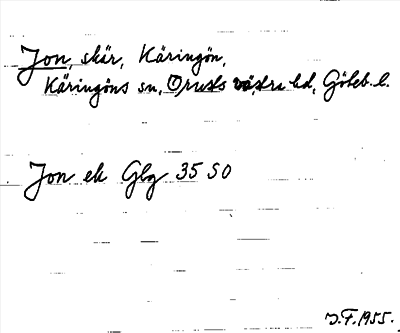 Jon, skär, Käringön,
Käringöns sn, Orusts västra hd, Göteb. l.
Jon ek Glg 35 SO
J.F. 1955.